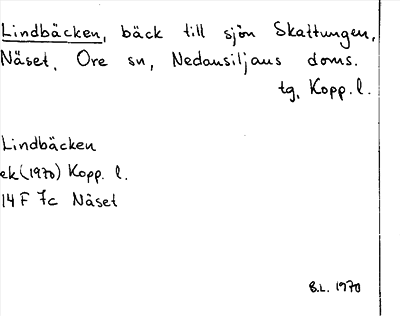 Lindbäcken, bäck till sjön Skattungen,
Näset, Ore sn, Nedansiljans doms.
tg, Kopp. l.
Lindbäcken
ek (1970) Kopp. l.
14 F 7c Näset
B.L. 1970